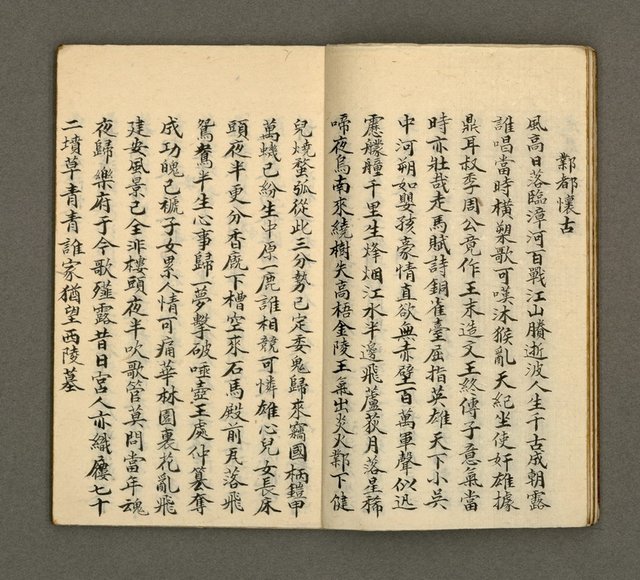 鄴都懷古
風高日落臨漳河百戰江山賸逝波人生千古成朝露
誰唱當時橫槊歌可嘆沐猴亂天紀坐使奸雄據
鼎耳叔季周公竟作王末造文王終傳子意氣當
時亦壯哉走馬賦詩銅雀臺屈指英雄天下小吳
中河朔如嬰孩豪情直欲無赤壁百萬軍聲似迅
霆艨艟千里生烽烟江水半邊飛蘆荻月落星稀
啼夜烏南來繞樹失高梧金陵王氣出炎火鄴下健
兒燒蝥弧從此三分勢已定委鬼歸來竊國柄鎧甲
萬蟣已紛生中原一鹿誰相競可憐雄心兒女長床
頭夜半更分香廐下槽空來石馬殿前瓦落飛
鴛鴦半生心事歸一夢擊破唾壺王處仲篡奪
成功魄已褫子女累人情可痛華林園裏花亂飛
建安風景已全非樓頭夜半吹歌管莫問當年魂
夜歸樂府于今歌薤露昔日宮人亦織屨七十
二墳草青青誰家猶望西陵墓